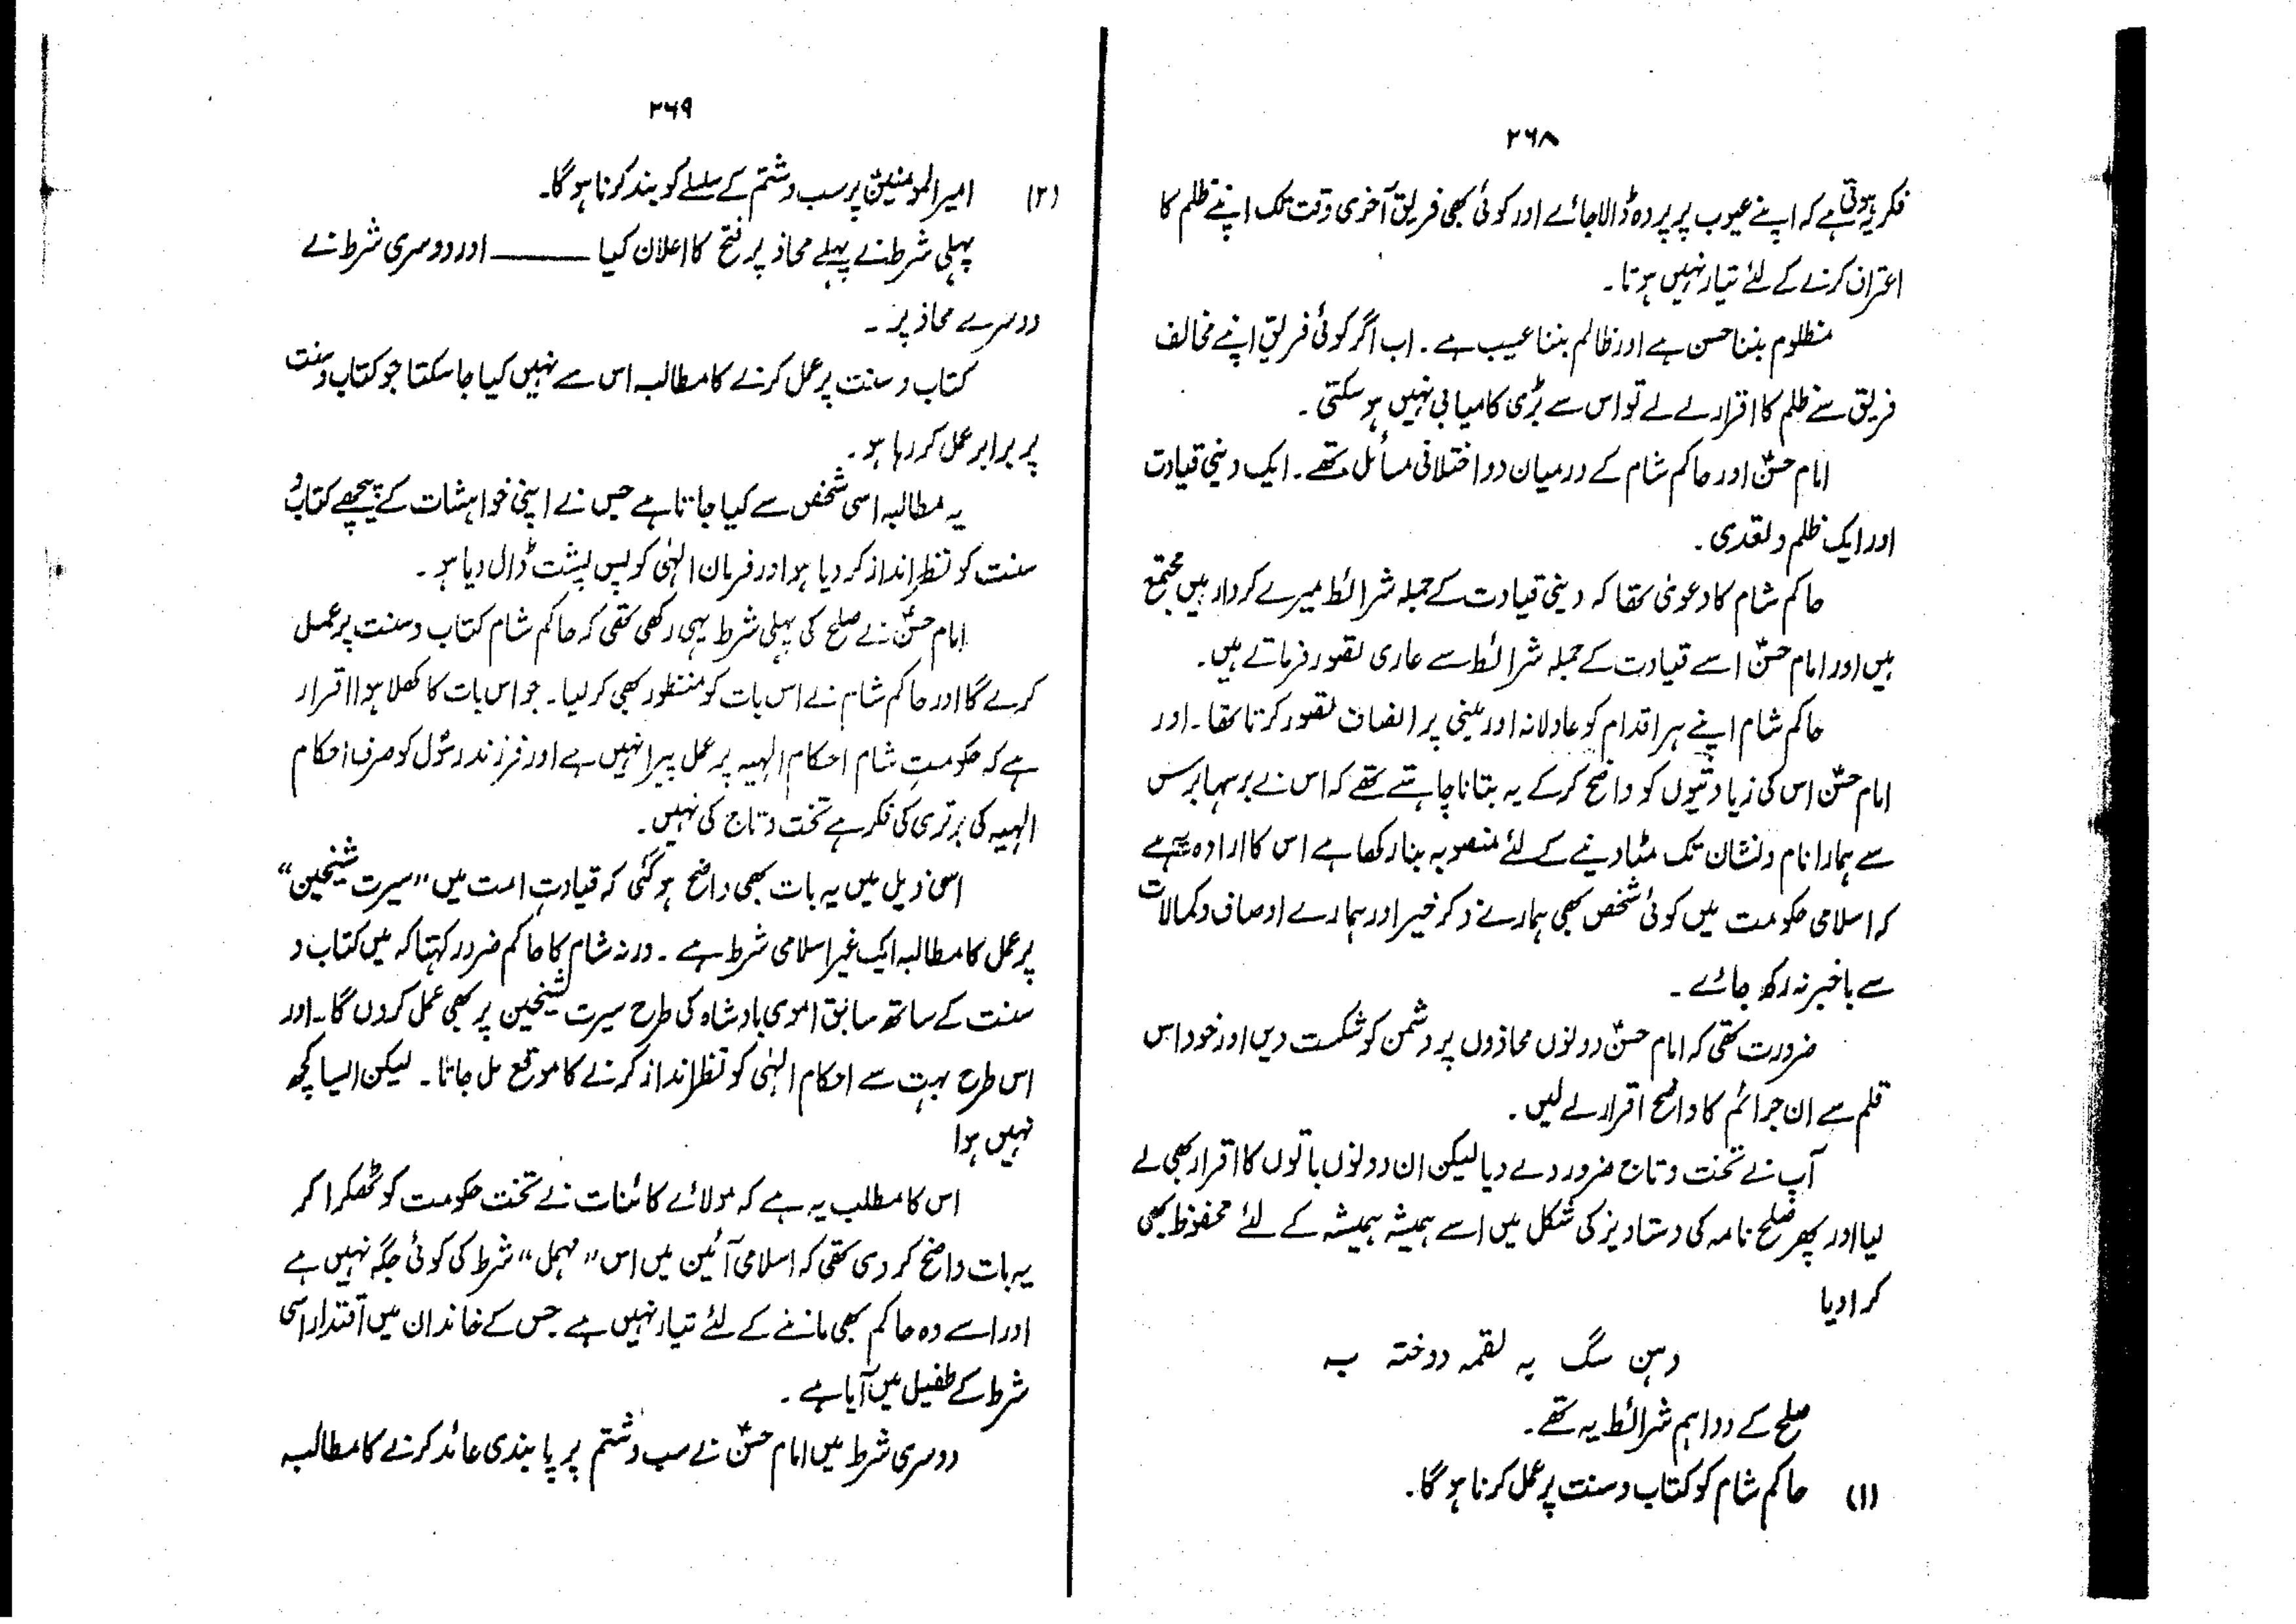 ۲۶۸
فکر یہ ہوتی ہے کہ اپنے عیوب پر پردہ ڈالا جائے اور کوئی بھی فریق آخری وقت تک اپنے ظلم کا
اعتراف کرنے کے لئے تیار نہیں ہوتا۔
مظلوم بننا حسن ہے اور ظالم بننا عیب ہے۔ اب اگر کوئی فریق اپنے مخالف
فریق سے ظلم کا اقرار لے لے تو اس سے بڑی کامیابی نہیں ہو سکتی۔
امام حسنؑ اور حاکم شام کے درمیان دو اختلافی مسائل تھے۔ ایک دینی قیادت
اور ایک ظلم و تعدی۔
حاکم شام کا دعویٰ تھا کہ دینی قیادت کے جملہ شرائط میرے کردار میں مجتمع
ہیں اور امام حسنؑ اسے قیادت کے جملہ شرائط سے عاری تصور فرماتے ہیں۔
حاکم شام اپنے ہر اقدام کو عادلانہ اور مبنی پر انصاف تصور کرتا تھا۔ اور
امام حسنؑ اس کی زیادتیوں کو واضح کرکے یہ بتانا چاہتے تھے کہ اس نے برسہا برس
سے ہمارا نام و نشان تک مٹا دینے کے لئے منصوبہ بنا رکھا ہے اس کا ارادہ یہ ہے
کہ اسلامی حکومت میں کوئی شخص بھی ہمارے ذکر خیر اور ہمارے اوصاف و کمالات
سے باخبر نہ رکھ جائے۔
ضرورت تھی کہ امام حسنؑ دونوں محاذوں پر دشمن کو شکست دیں اور خود اس
قلم سے ان جرائم کا واضح اقرار لے لیں۔
آپ نے تخت و تاج ضرور دے دیا لیکن ان دونوں باتوں کا اقرار بھی لے
لیا اور پھر صلح نامہ کی دستاویز کی شکل میں اسے ہمیشہ ہمیشہ کے لئے محفوظ بھی
کرا دیا
دہن سگ بہ لقمہ دوختہ بہ
صلح کے دو اہم شرائط یہ تھے۔
(۱) حاکم شام کو کتاب و سنت پر عمل کرنا ہوگا۔
۲۶۹
(۲) امیرالمومنینؑ پر سب و شتم کے سلسلے کو بند کرنا ہوگا۔
پہلی شرط نے پہلے محاذ پر فتح کا اعلان کیا ——— اور دوسری شرط نے
دوسرے محاذ پر۔
کتاب و سنت پر عمل کرنے کا مطالبہ اس سے نہیں کیا جا سکتا جو کتاب و سنت
پر برابر عمل کر رہا ہو۔
یہ مطالبہ اسی شخص سے کیا جاتا ہے جس نے اپنی خواہشات کے پیچھے کتاب و
سنت کو نظر انداز کر دیا ہو اور فرمان الہٰی کو پس پشت ڈال دیا ہو۔
امام حسنؑ نے صلح کی پہلی شرط یہی رکھی تھی کہ حاکم شام کتاب و سنت پر عمل
کرے گا اور حاکم شام نے اس بات کو منظور بھی کر لیا۔ جو اس بات کا کھلا ہوا اقرار
ہے کہ حکومتِ شام احکام الہیہ پر عمل پیرا نہیں ہے اور فرزند رسولؐ کو صرف احکام
الہیہ کی برتری کی فکر ہے تخت و تاج کی نہیں۔
اسی ذیل میں یہ بات بھی واضح ہو گئی کہ قیادتِ امت میں "سیرت شیخین"
پر عمل کا مطالبہ ایک غیر اسلامی شرط ہے۔ ورنہ شام کا حاکم ضرور کہتا کہ میں کتاب و
سنت کے ساتھ سابق اموی بادشاہ کی طرح سیرت شیخین پر بھی عمل کروں گا۔ اور
اس طرح بہت سے احکام الہٰی کو نظر انداز کرنے کا موقع مل جاتا۔ لیکن ایسا کچھ
نہیں ہوا
اس کا مطلب یہ ہے کہ مولائے کائنات نے تخت حکومت کو ٹھکرا کر
یہ بات واضح کر دی تھی کہ اسلامی آئین میں اس "مہمل" شرط کی کوئی جگہ نہیں ہے
اور اسے وہ حاکم بھی ماننے کے لئے تیار نہیں ہے جس کے خاندان میں اقتدار اسی
شرط کے طفیل میں آیا ہے۔
دوسری شرط میں امام حسنؑ نے سب و شتم پر پابندی عائد کرنے کا مطالبہ